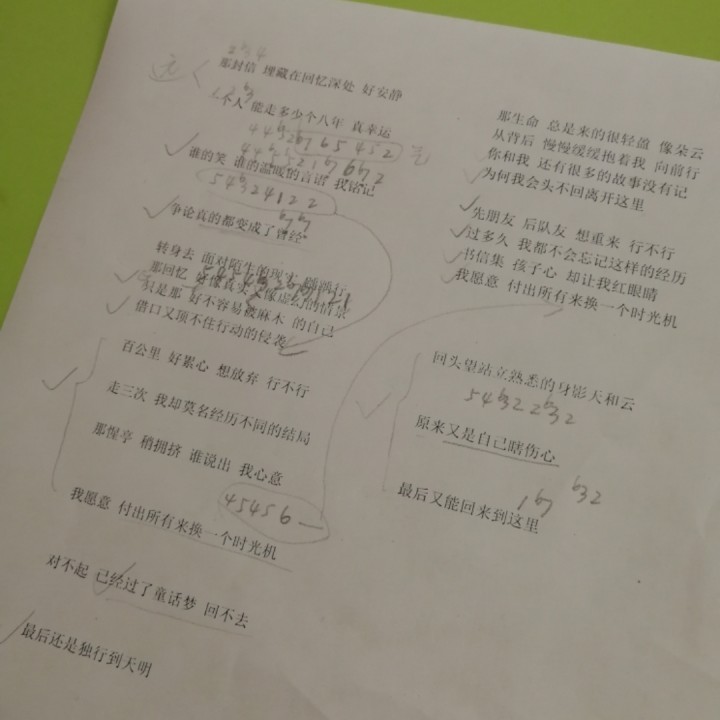 那封信 埋藏在回忆深处 好安静
一个人 能走多少个八年 真幸运
谁的笑 谁的温暖的言语 我铭记
5 4 b3 2 4 1 2 2
争论真的都变成了曾经
转身去 面对陌生的现实
那回忆 好像真实
只是那 好不容易被麻木 的自己
借口又顶不住行动的侵袭
百公里 好累心 想放弃 行不行
走三次 我却莫名经历不同的结局
那惺亭 稍拥挤 谁说出 我心意
4 5 4 5 6 —
我愿意 付出所有来换一个时光机
对不起 已经过了童话梦 回不去
最后还是独行到天明
那生命 总是来的很轻盈 像朵云
从背后 慢慢缓缓抱着我 向前行
你和我 还有很多的故事没有记
为何我会头不回离开这里
先朋友 后队友 想重来 行不行
过多久 我都不会忘记这样的经历
书信集 孩子心 却让我红眼睛
我愿意 付出所有来换一个时光机
回头望站立熟悉的身影天和云
5 4 b3 2 2 b3 2
原来又是自己瞎伤心
1 b7 b3 2
最后又能回来到这里